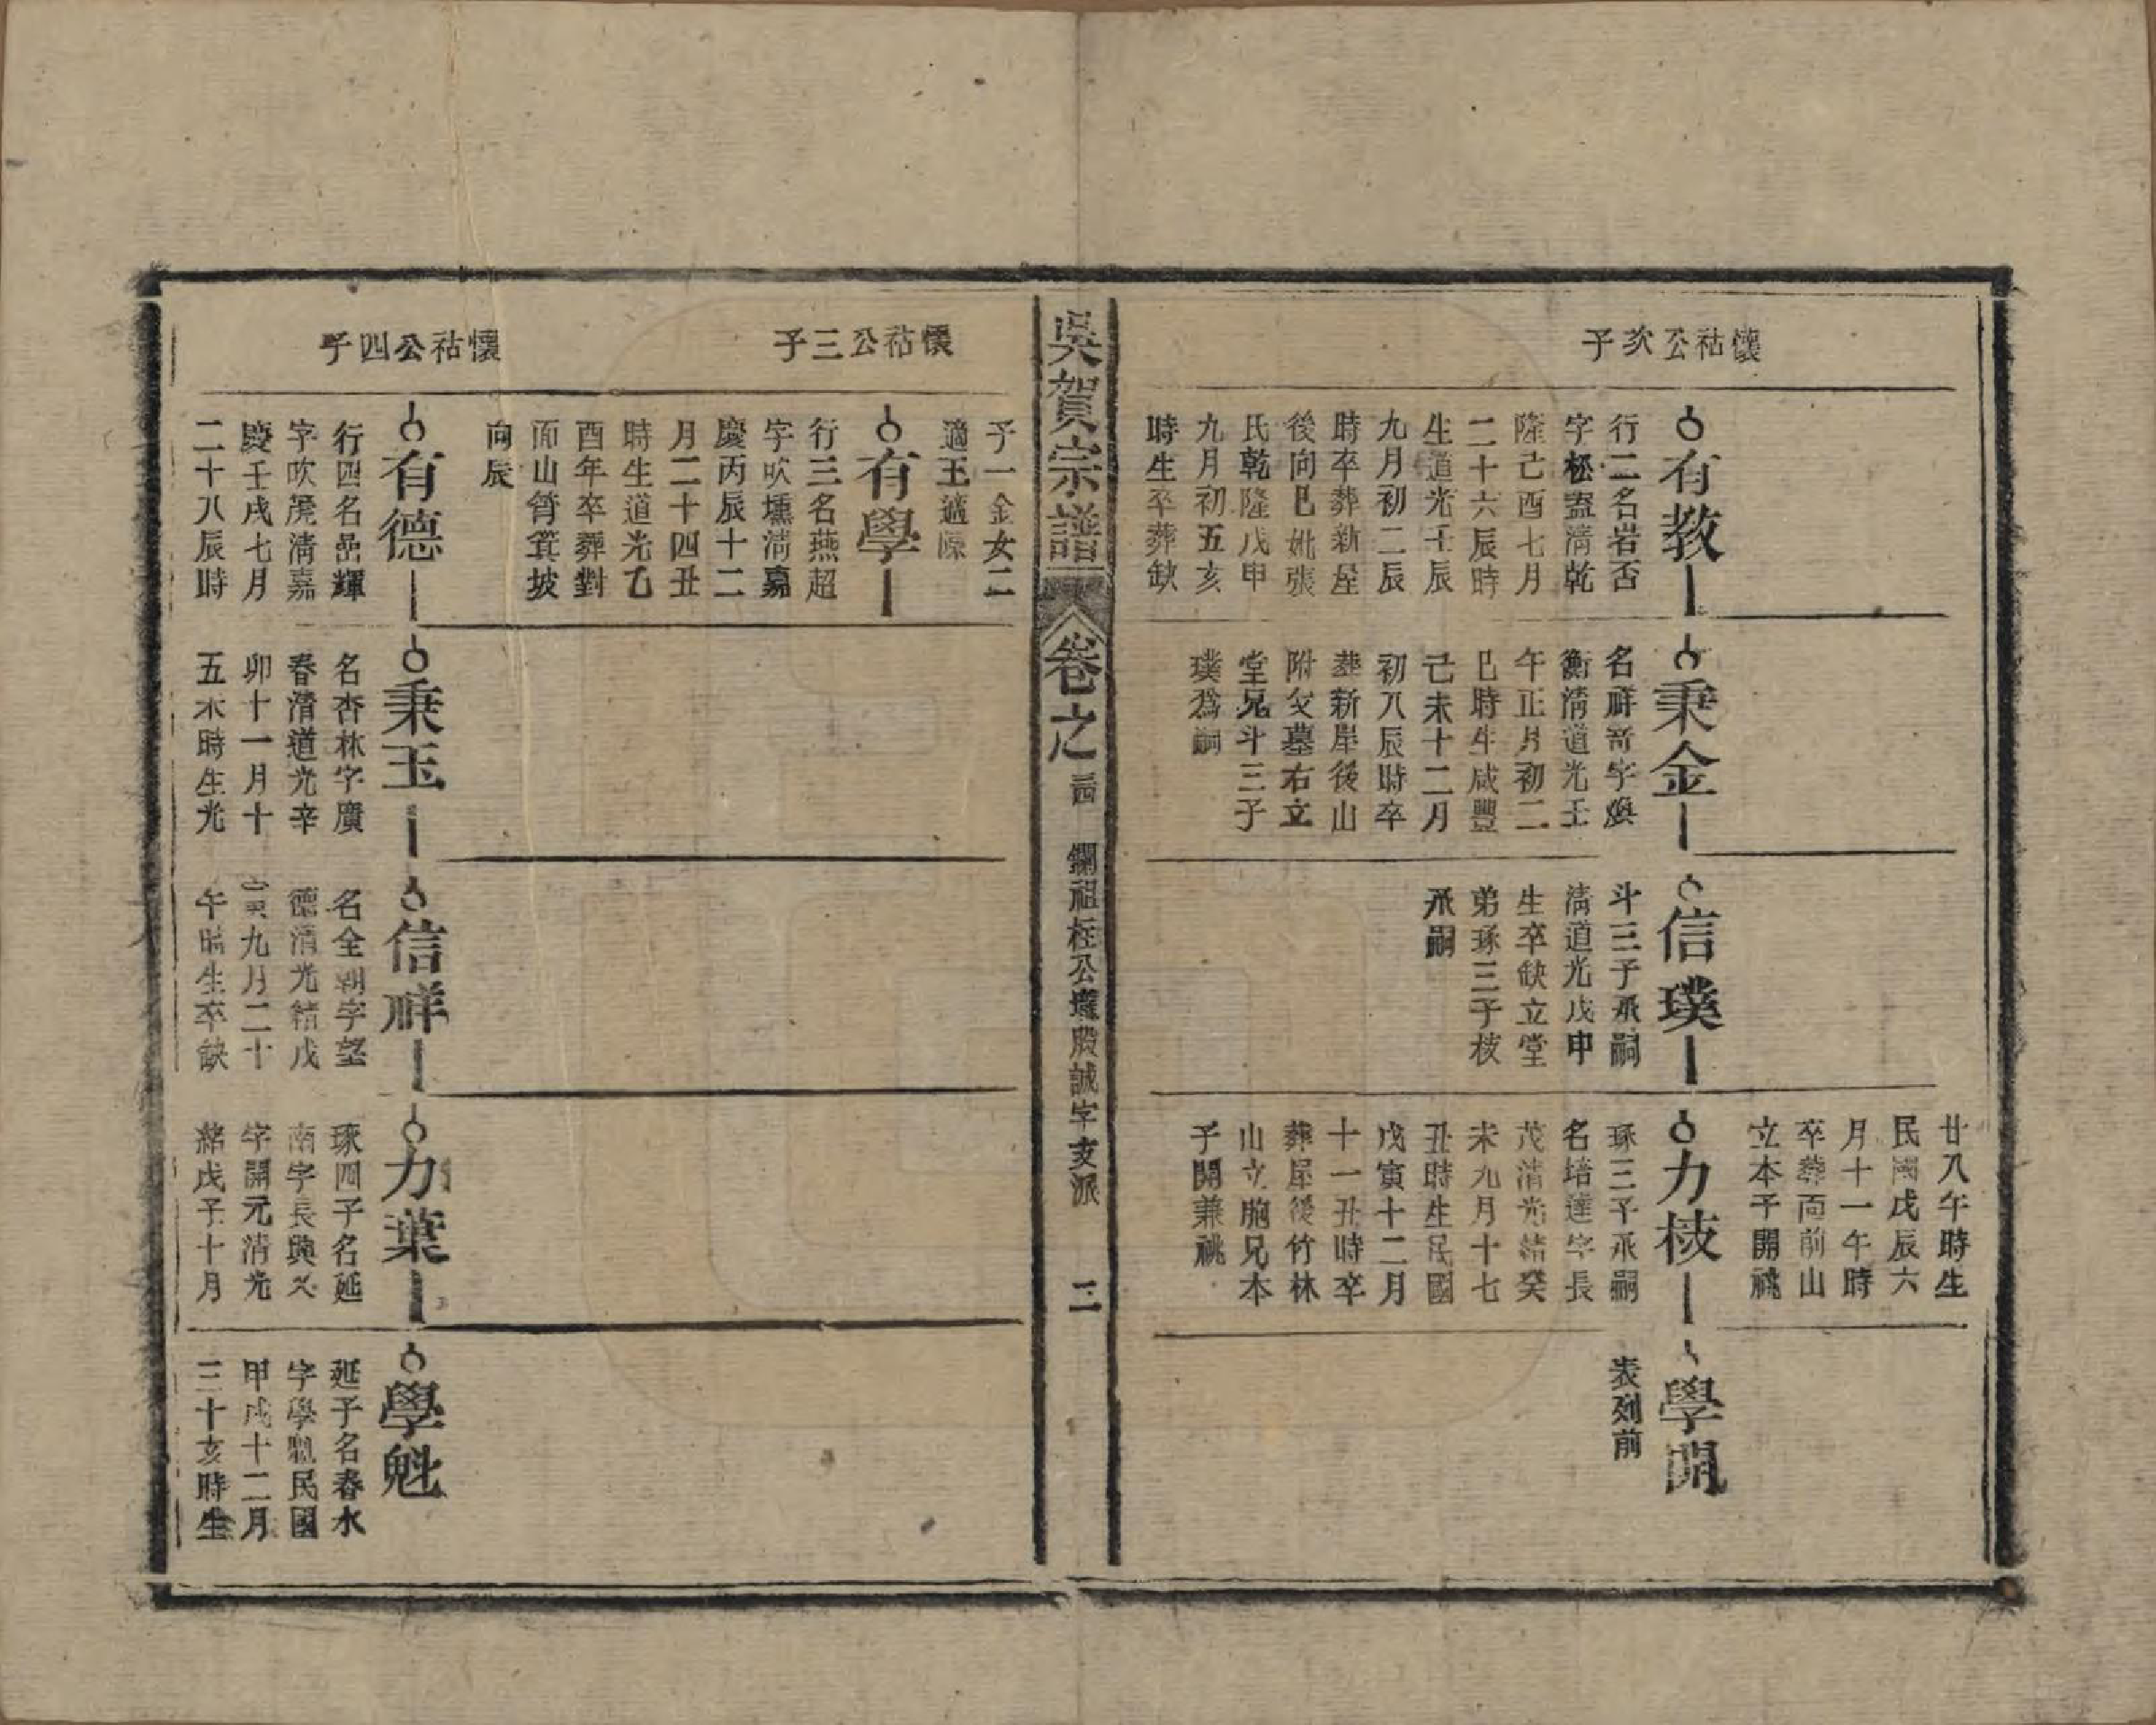 懷祜公次子
有教
行二名岩否
字松盔淸乾
隆己酉七月
二十六辰時
生道光壬辰
九月初二辰
時卒葬新屋
後向巳妣張
氏乾隆戊申
九月初五亥
時生卒葬缺
秉金
名祥奇字煥
衡淸道光壬
午正月初二
巳時生咸豐
己未十二月
初八辰時卒
葬新屋後山
附父墓右立
堂兄斗三子
璞爲嗣
信璞
斗三子承嗣
淸道光戊申
生卒缺立堂
弟琢三子枝
承嗣
廿八午時生
民國戊辰六
月十一午時
卒葬面前山
立本子開祧
力枝
琢三子承嗣
名培達字長
茂淸光緒癸
未九月十七
丑時生民國
戊寅十二月
十一丑時卒
葬屋後竹林
山立胞兄本
子開兼祧
學開
表列前
吳賀宗譜
卷之
鐗祖枉公
股誠字支派
二
懷祜公三子
子一金女二
適王適陳
有學
行三名燕超
字吹壎淸嘉
慶丙辰十二
月二十四丑
時生道光乙
酉年卒葬對
面山筲箕坡
向辰
懷祜公四子
有德
行四名嵒輝
字吹篪淸嘉
慶壬戌七月
二十八辰時
秉玉
名杏林字廣
春淸道光辛
卯十一月十
五未時生光
信祥
名全朝字望
德淸光緒戊
寅九月二十
午時生卒缺
力葉
琢四子名延
南字長興又
字開元淸光
緒戊子十月
學魁
延子名春水
字學魁民國
甲戌十二月
三十亥時生